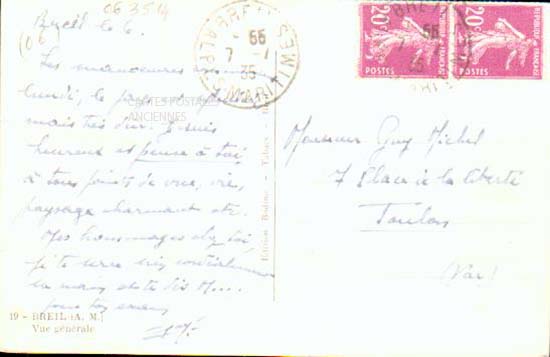 06 3514
Breil le 6.
(06
Les manoeuvres
lundi, le
mais très dur. Je suis
heureux et pense à toi,
à tous points de vue, vie,
paysage charmant etc.
Mes hommages chez toi,
je te serre très cordialement
la main et te dis M....
pour ton examen
CARTES POSTALES
ANCIENNES
19 - BREIL (A. M.)
Vue générale
Edition Bodino - Tabacs
BREIL
ALPES MARITIMES
66
7 - 1
35
20c
POSTES
20c
POSTES
Monsieur Guy Michel
7 Place à la liberté
Toulon
(Var)